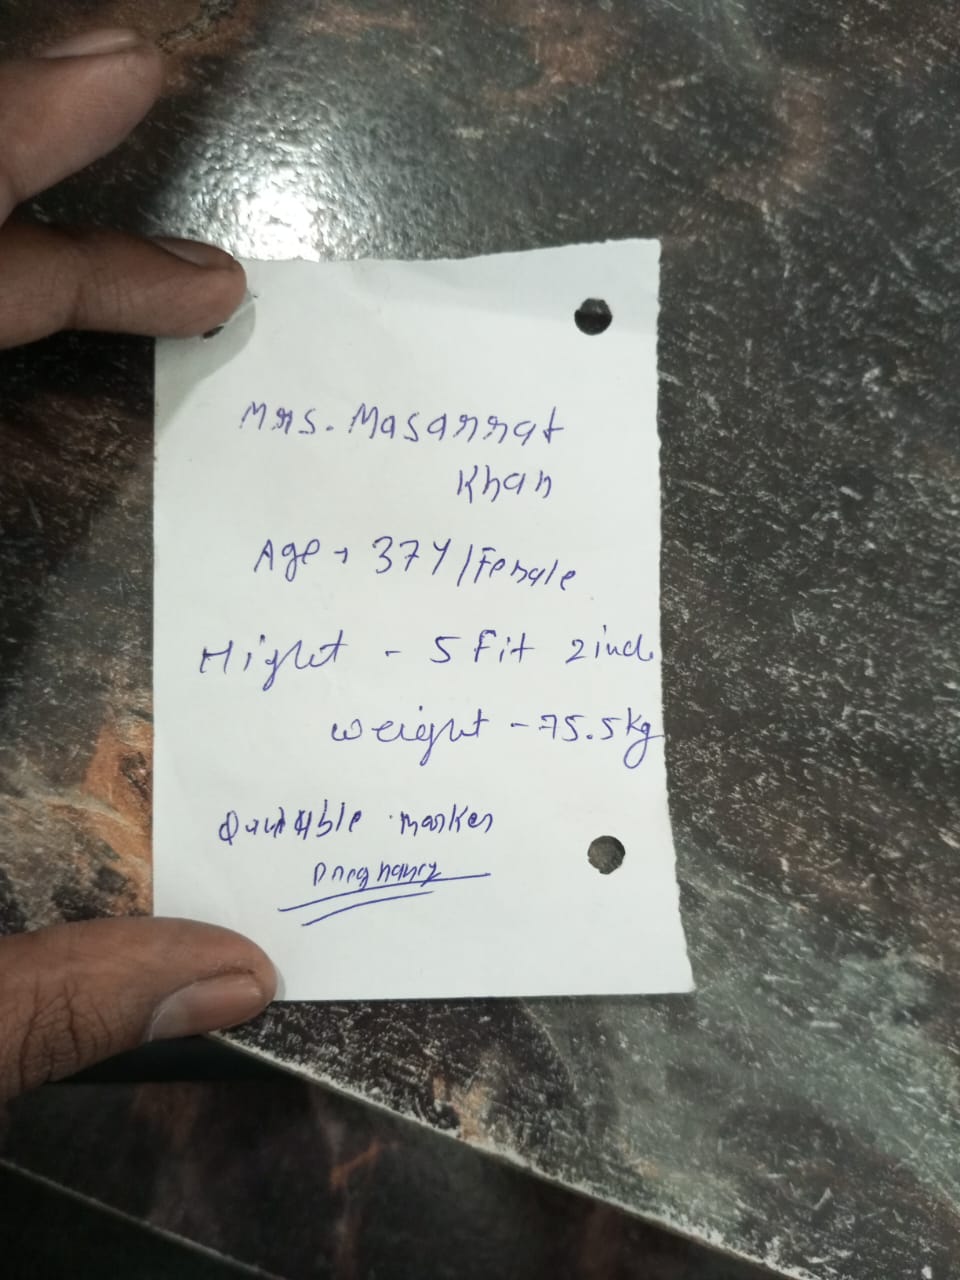 Mrs. Masarrat
Khan
Age → 37Y/Female
Hight - 5 Fit 2 inch
weight - 75.5kg
marker
Pregnancy